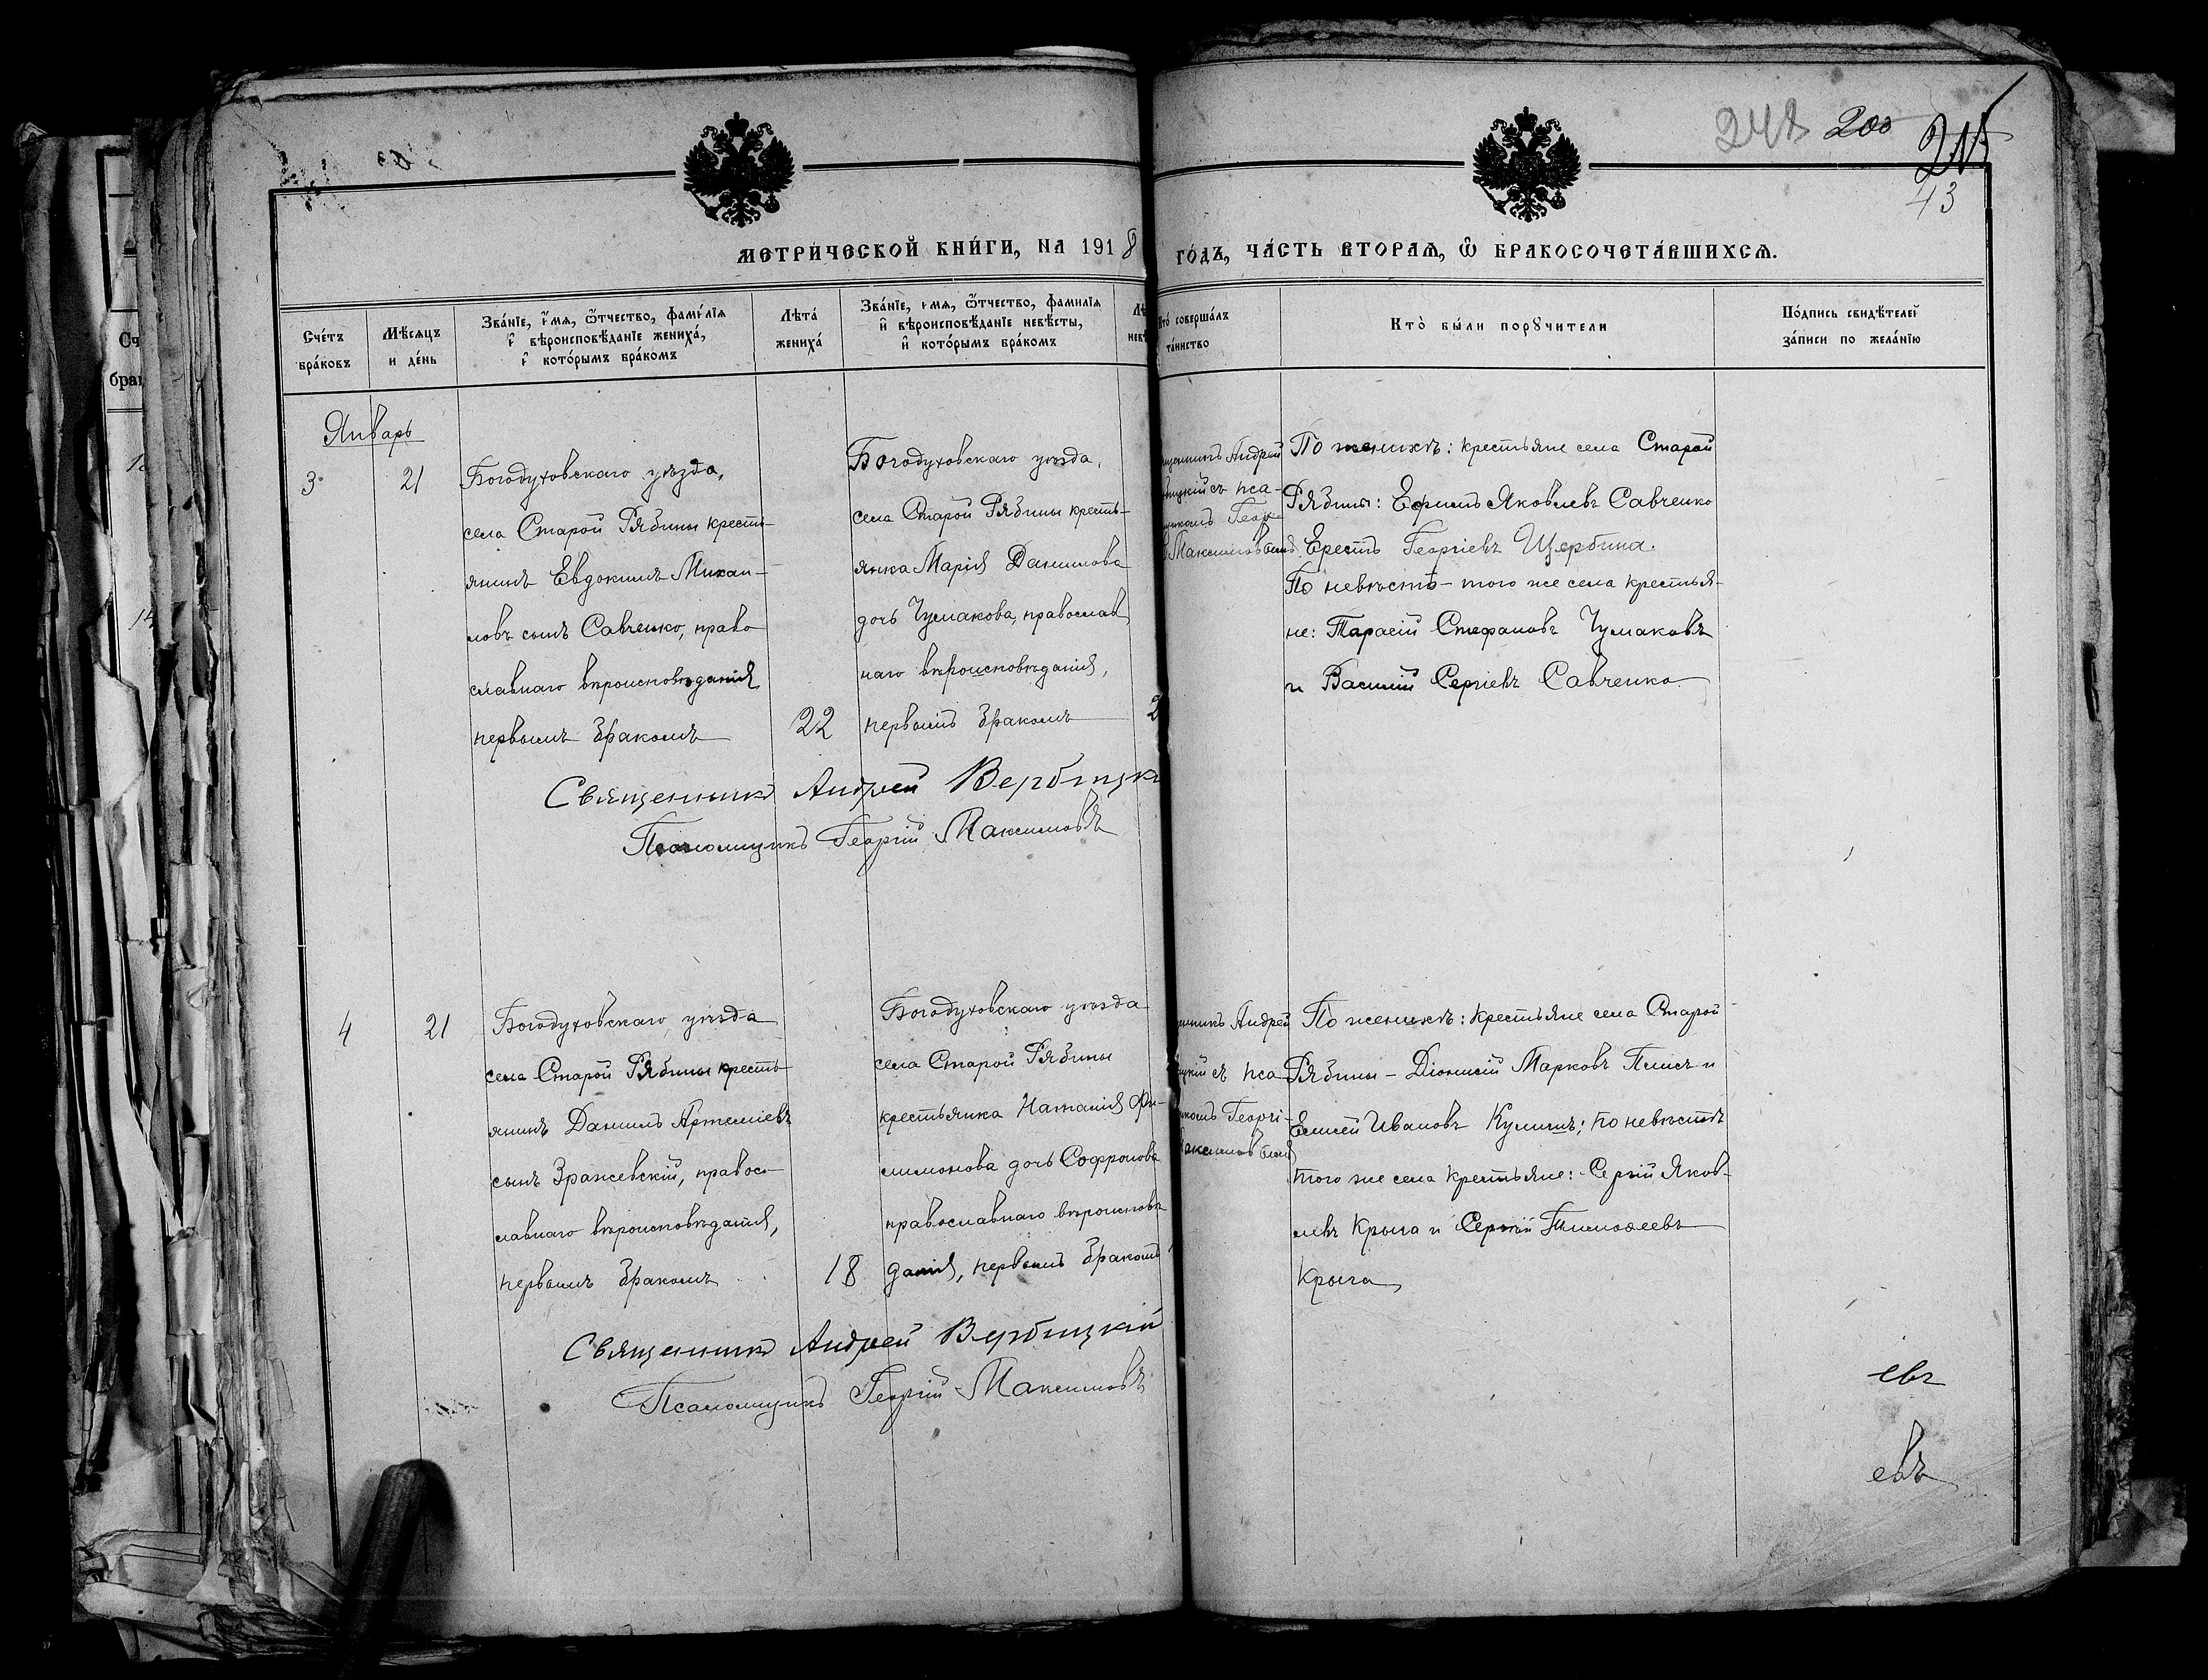 248 200 215
43
МЕТРИ́ЧЕСКОЙ КНИ́ГИ, НА 1918 ГО́ДЪ, ЧА́СТЬ ВТОРАѦ, Ѽ БРАКОСОЧЕТА́ВШИХСѦ.
Сче́тъ бра́ковъ
Мѣ́сяцъ и де́нь
Зва́нїе, и҆́мѧ, ѻ҆́тчество, фамилїѧ и҆ вѣроисповѣ́данїе жениха̀, и҆ кото́рымъ бра́комъ
Лѣта̀ жениха̀
Зва́нїе, и҆́мѧ, ѻ҆́тчество, фамилїѧ и҆ вѣроисповѣ́данїе невѣ́сты, и҆ кото́рымъ бра́комъ
соверша́лъ та́инство
Кто̀ бы́ли порꙋчители
По́дпись свидѣ́телей за́писи по жела́нїю
Январь
3 21
Богодуховскаго уѣзда,
села Старой Рябины кресть-
янинъ Евдокимъ Михаи-
ловъ сынъ Савченко, право
славнаго вѣроисповѣданія
первымъ бракомъ
22
Богодуховскаго уѣзда,
села Старой Рябины кресть-
янка Марія Данилова
дочь Чумакова, православ
наго вѣроисповѣданія,
первымъ бракомъ
2
Андрей
съ пса-
Георг
Максимовымъ
По женихѣ: крестьяне села Старой
Рябины: Ефимъ Яковлевъ Савченко
Георгіевъ Щербина.
По невѣстѣ – того же села крестья-
не: Тарасій Стефановъ Чумаковъ
и Василій Сергіевъ Савченко
Священникъ Андрей Вербицк
Псаломщикъ Георгій Максимовъ
4 21
Богодуховскаго уѣзда
села Старой Рябины кресть-
янинъ Даніилъ Артеміевъ
сынъ Зражевскій, правос-
лавнаго вѣроисповѣданія,
первымъ бракомъ
18
Богодуховскаго уѣзда
села Старой Рябины
крестьянка Наталія Фи-
лимонова дочь Софронова
православнаго вѣроисповѣ
данія, первымъ бракомъ
Андрей
съ пса
Георгі-
По женихѣ: крестьяне села Старой
Рябины – Діонисій Марковъ и
Елисей Ивановъ Кулишъ; по невѣстѣ
того же села крестьяне: Сергій Яков-
левъ Крыга и Сергій Тимоѳеевъ
Крыга
Священникъ Андрей Вербицкій
Псаломщикъ Георгій Максимовъ
евъ
евъ